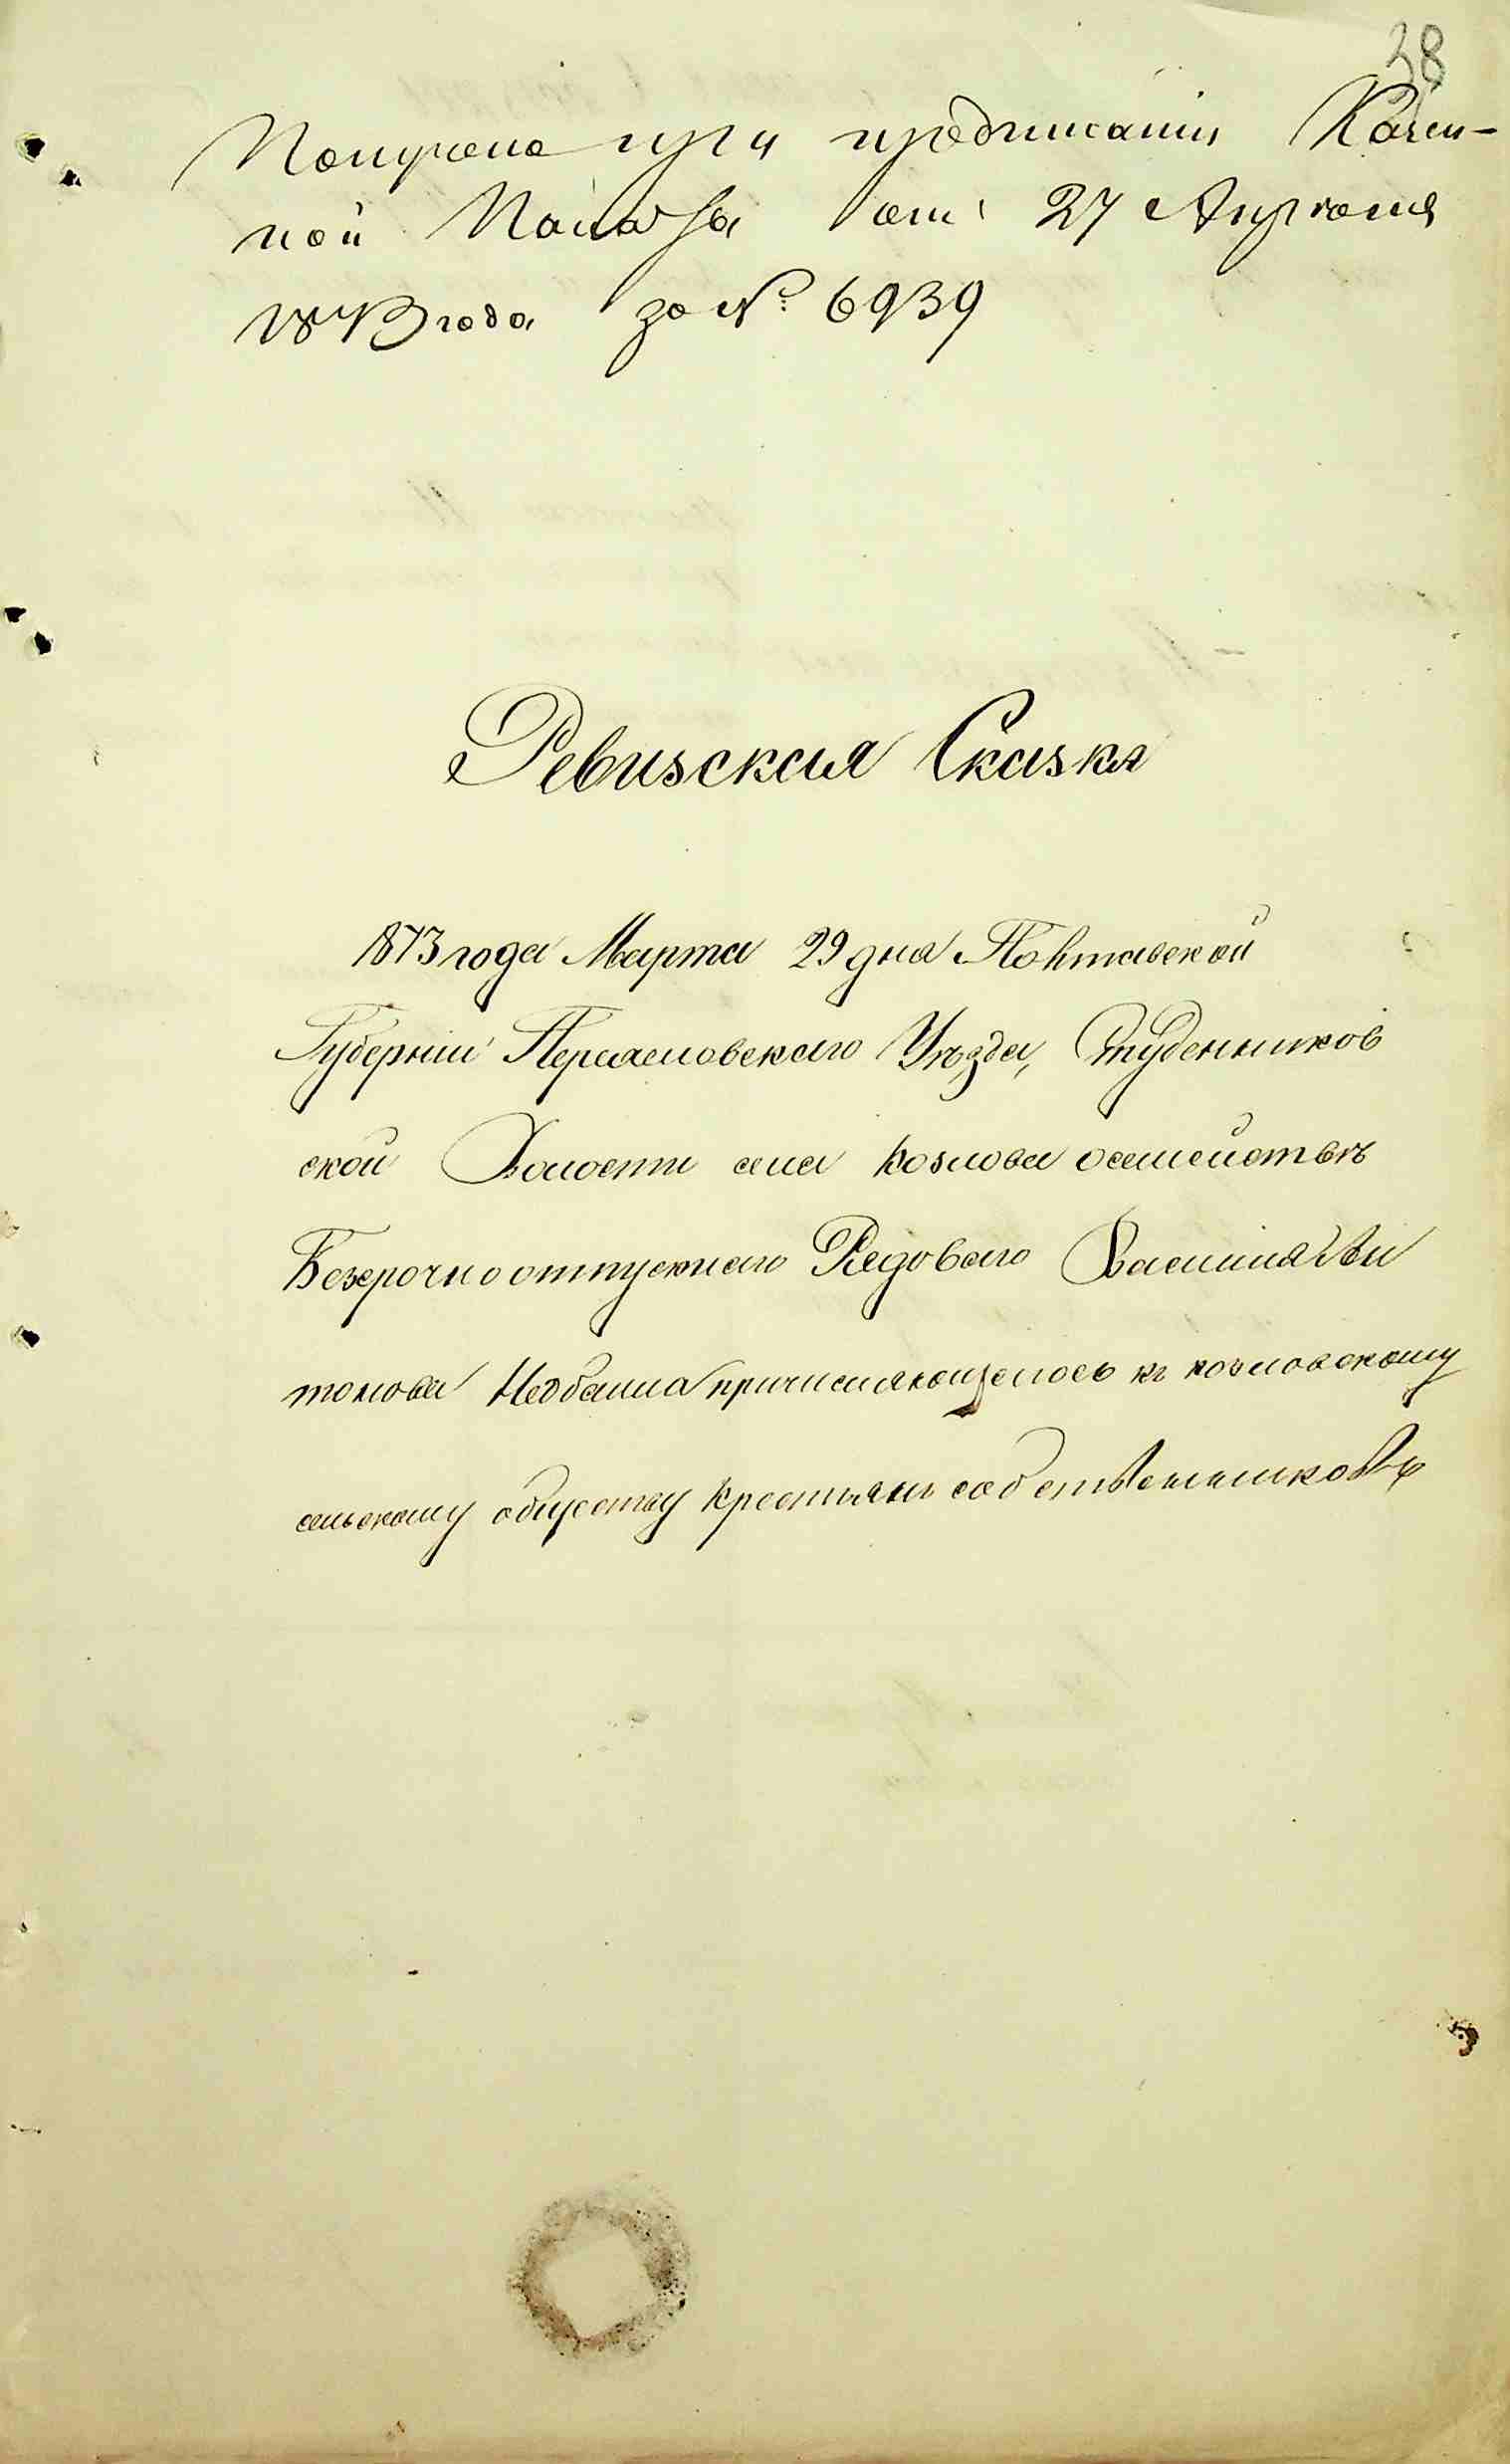 38
Получена при предписаніи Казен-
ной Палаты отъ 27 Апреля
1873 года за № 6939
Ревизская Сказка
1873 года Марта 29 дня Полтавской
Губерніи Переясловскаго Уѣзда, Студенников
ской Волости села Козлова осемействѣ
Безсрочноотпускнаго Рядоваго Василия Ан
тонова Недбаила причисляющегось къ козловскому
сельскому обществу крестьянъ собственниковъ